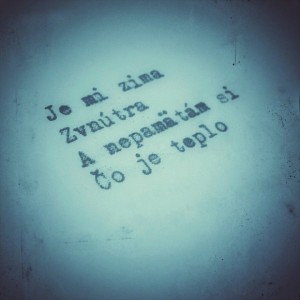 Je mi zima
Zvnútra
A nepamätám si
Čo je teplo